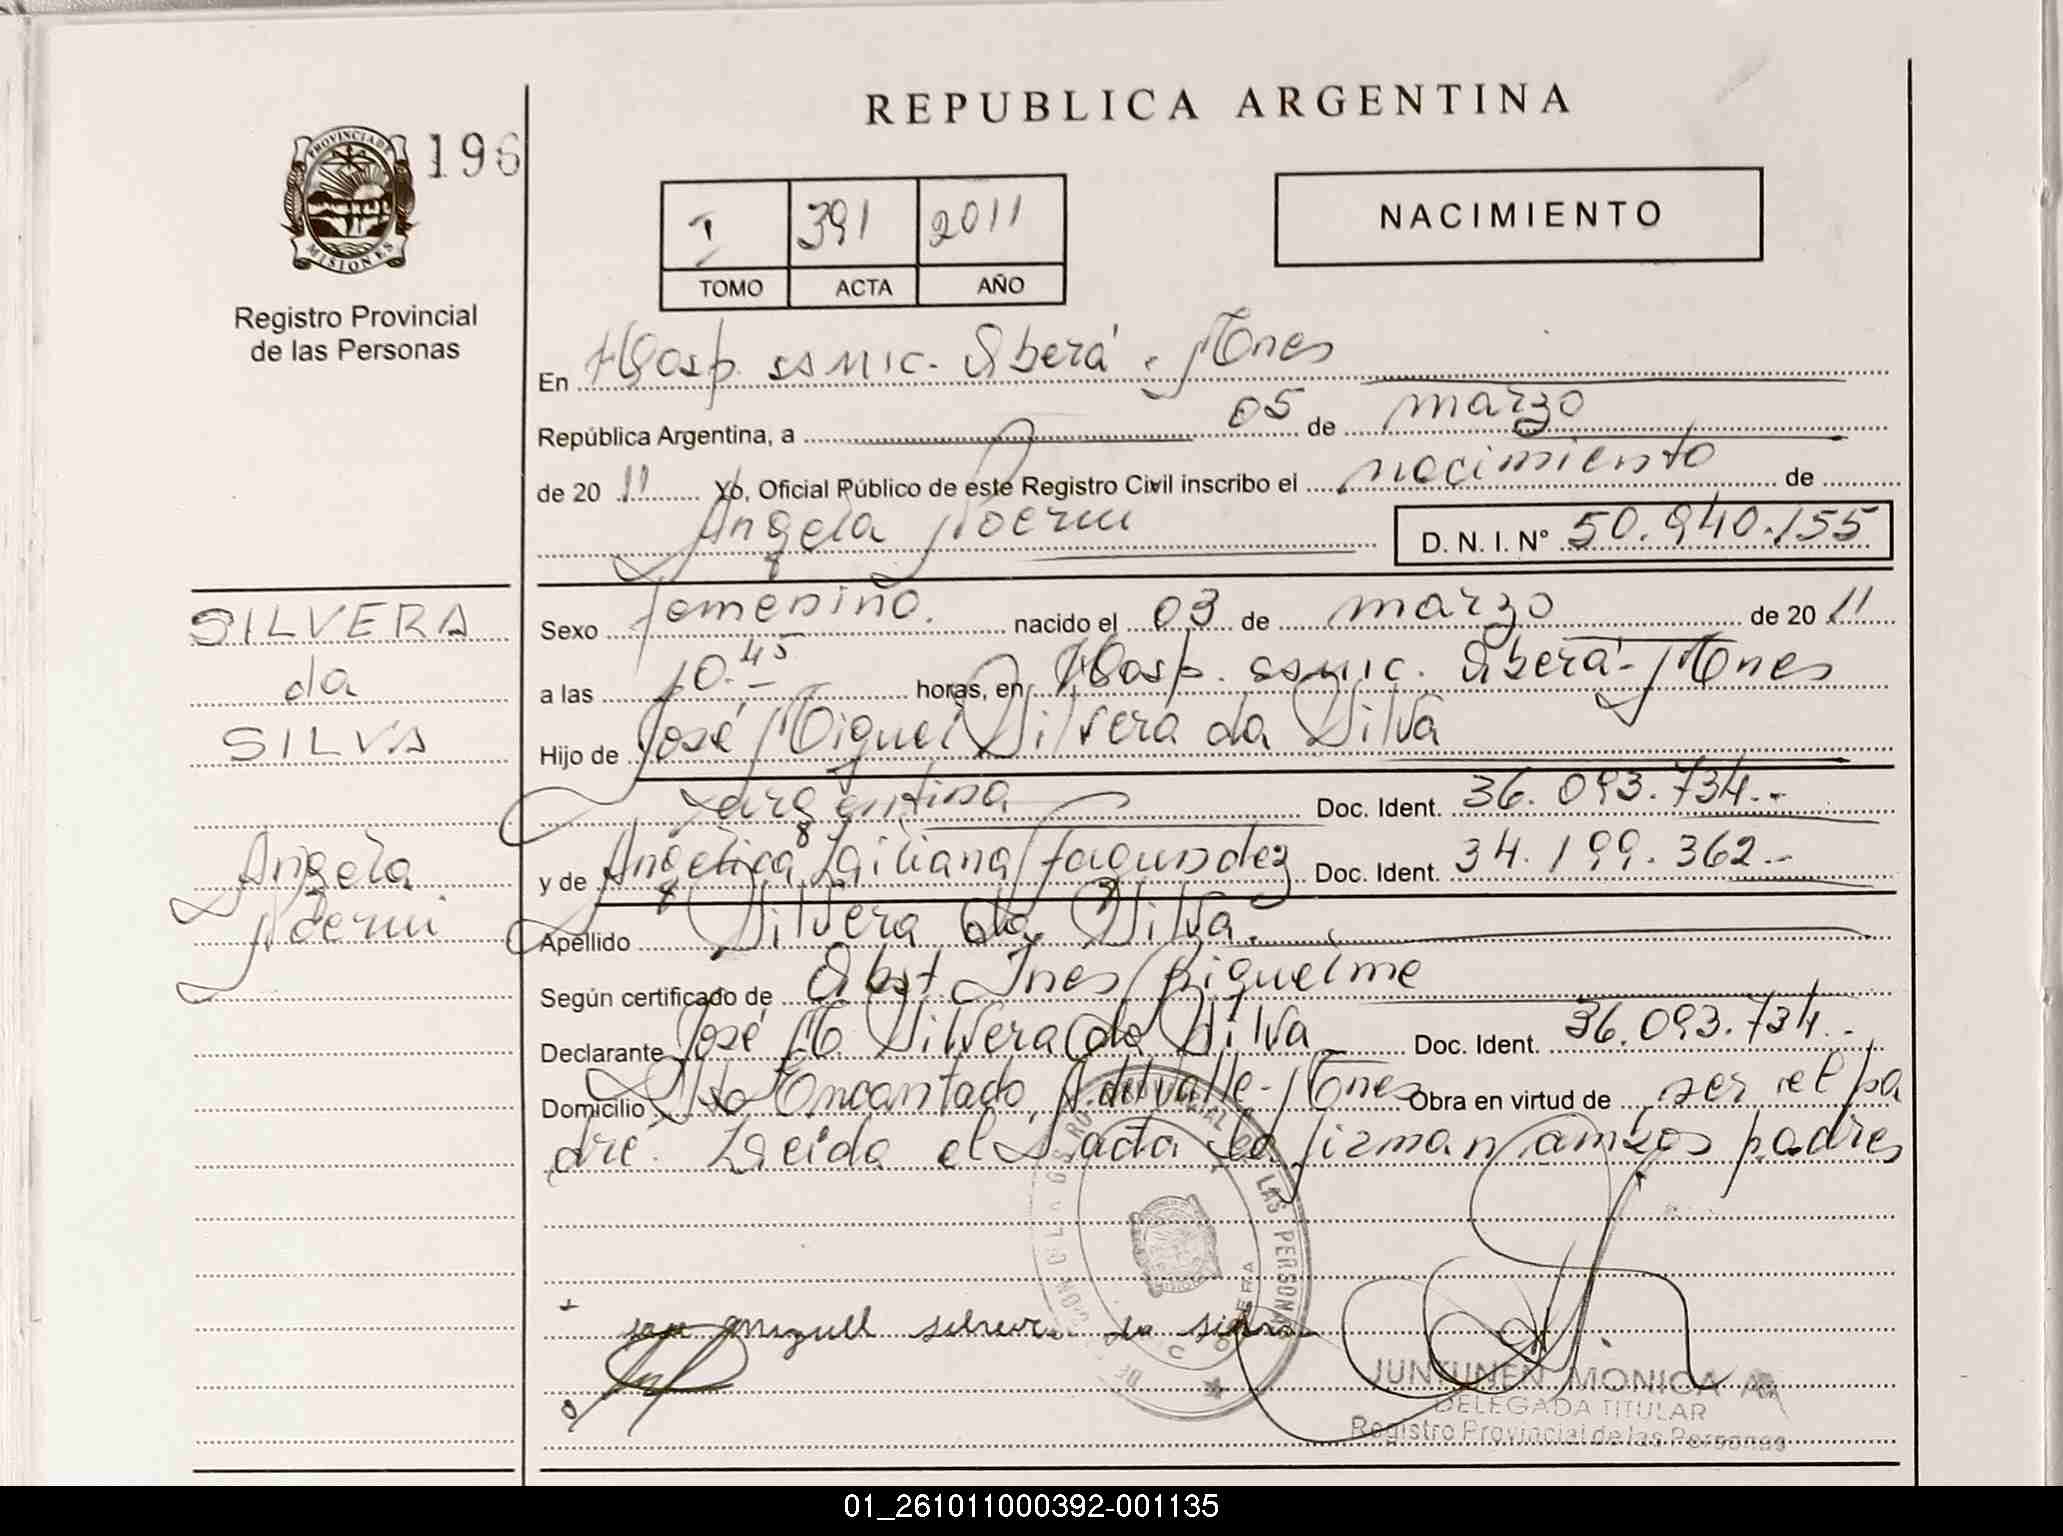 REPUBLICA ARGENTINA
PROVINCIA DE MISIONES
196
Registro Provincial
de las Personas
I 391 2011
TOMO ACTA AÑO
NACIMIENTO
En Hosp. SAMIC. Oberá. Mnes
República Argentina, a 05 de marzo
de 20 11 Yo, Oficial Público de este Registro Civil inscribo el nacimiento de
Angela Noemi D. N. I. Nº 50.940.155
SILVERA
da
SILVA
Angela
Noemi
Sexo femenino. nacido el 03 de marzo de 20 11
a las 10.45 horas, en Hosp. SAMIC. Oberá - Mnes
Hijo de José Miguel Silvera da Silva
argentina Doc. Ident. 36.093.734.-
y de Angelica Liliana Fagundez Doc. Ident. 34.199.362.-
Apellido Silvera da Silva.
Según certificado de Obst. Ines Riquelme
Declarante José M Silvera da Silva Doc. Ident. 36.093.734.-
Domicilio Alto Encantado, A. del valle - Mnes Obra en virtud de ser el pa
dre. Leida el acta la firman ambos padres
miguel da
REGISTRO PROVINCIAL DE LAS PERSONAS
OBERA
JUNTUNEN MONICA
DELEGADA TITULAR
Registro Provincial de las Personas
01_261011000392-001135